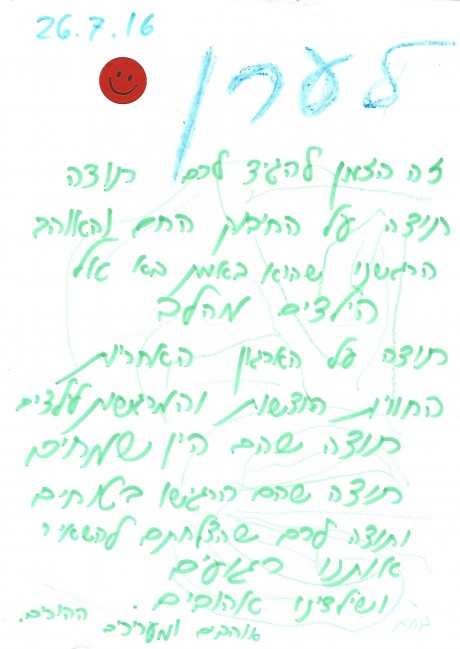 26.7.16
לערן
זה הזמן להגיד לכם תודה
תודה על החיבוק החם והאוהב
הרגשנו שהוא באמת בא אל
הילדים מהלב
תודה על הארגון האחריות
החוויות החדשות והמרגשות לילדים
תודה שהם היו שמחים
תודה שהם הרגישו בטוחים
ותודה לכם שהצלחתם להשאיר
אותנו רגועים
ושילדינו אהובים.
אוהבים ומעריכים ההורים.